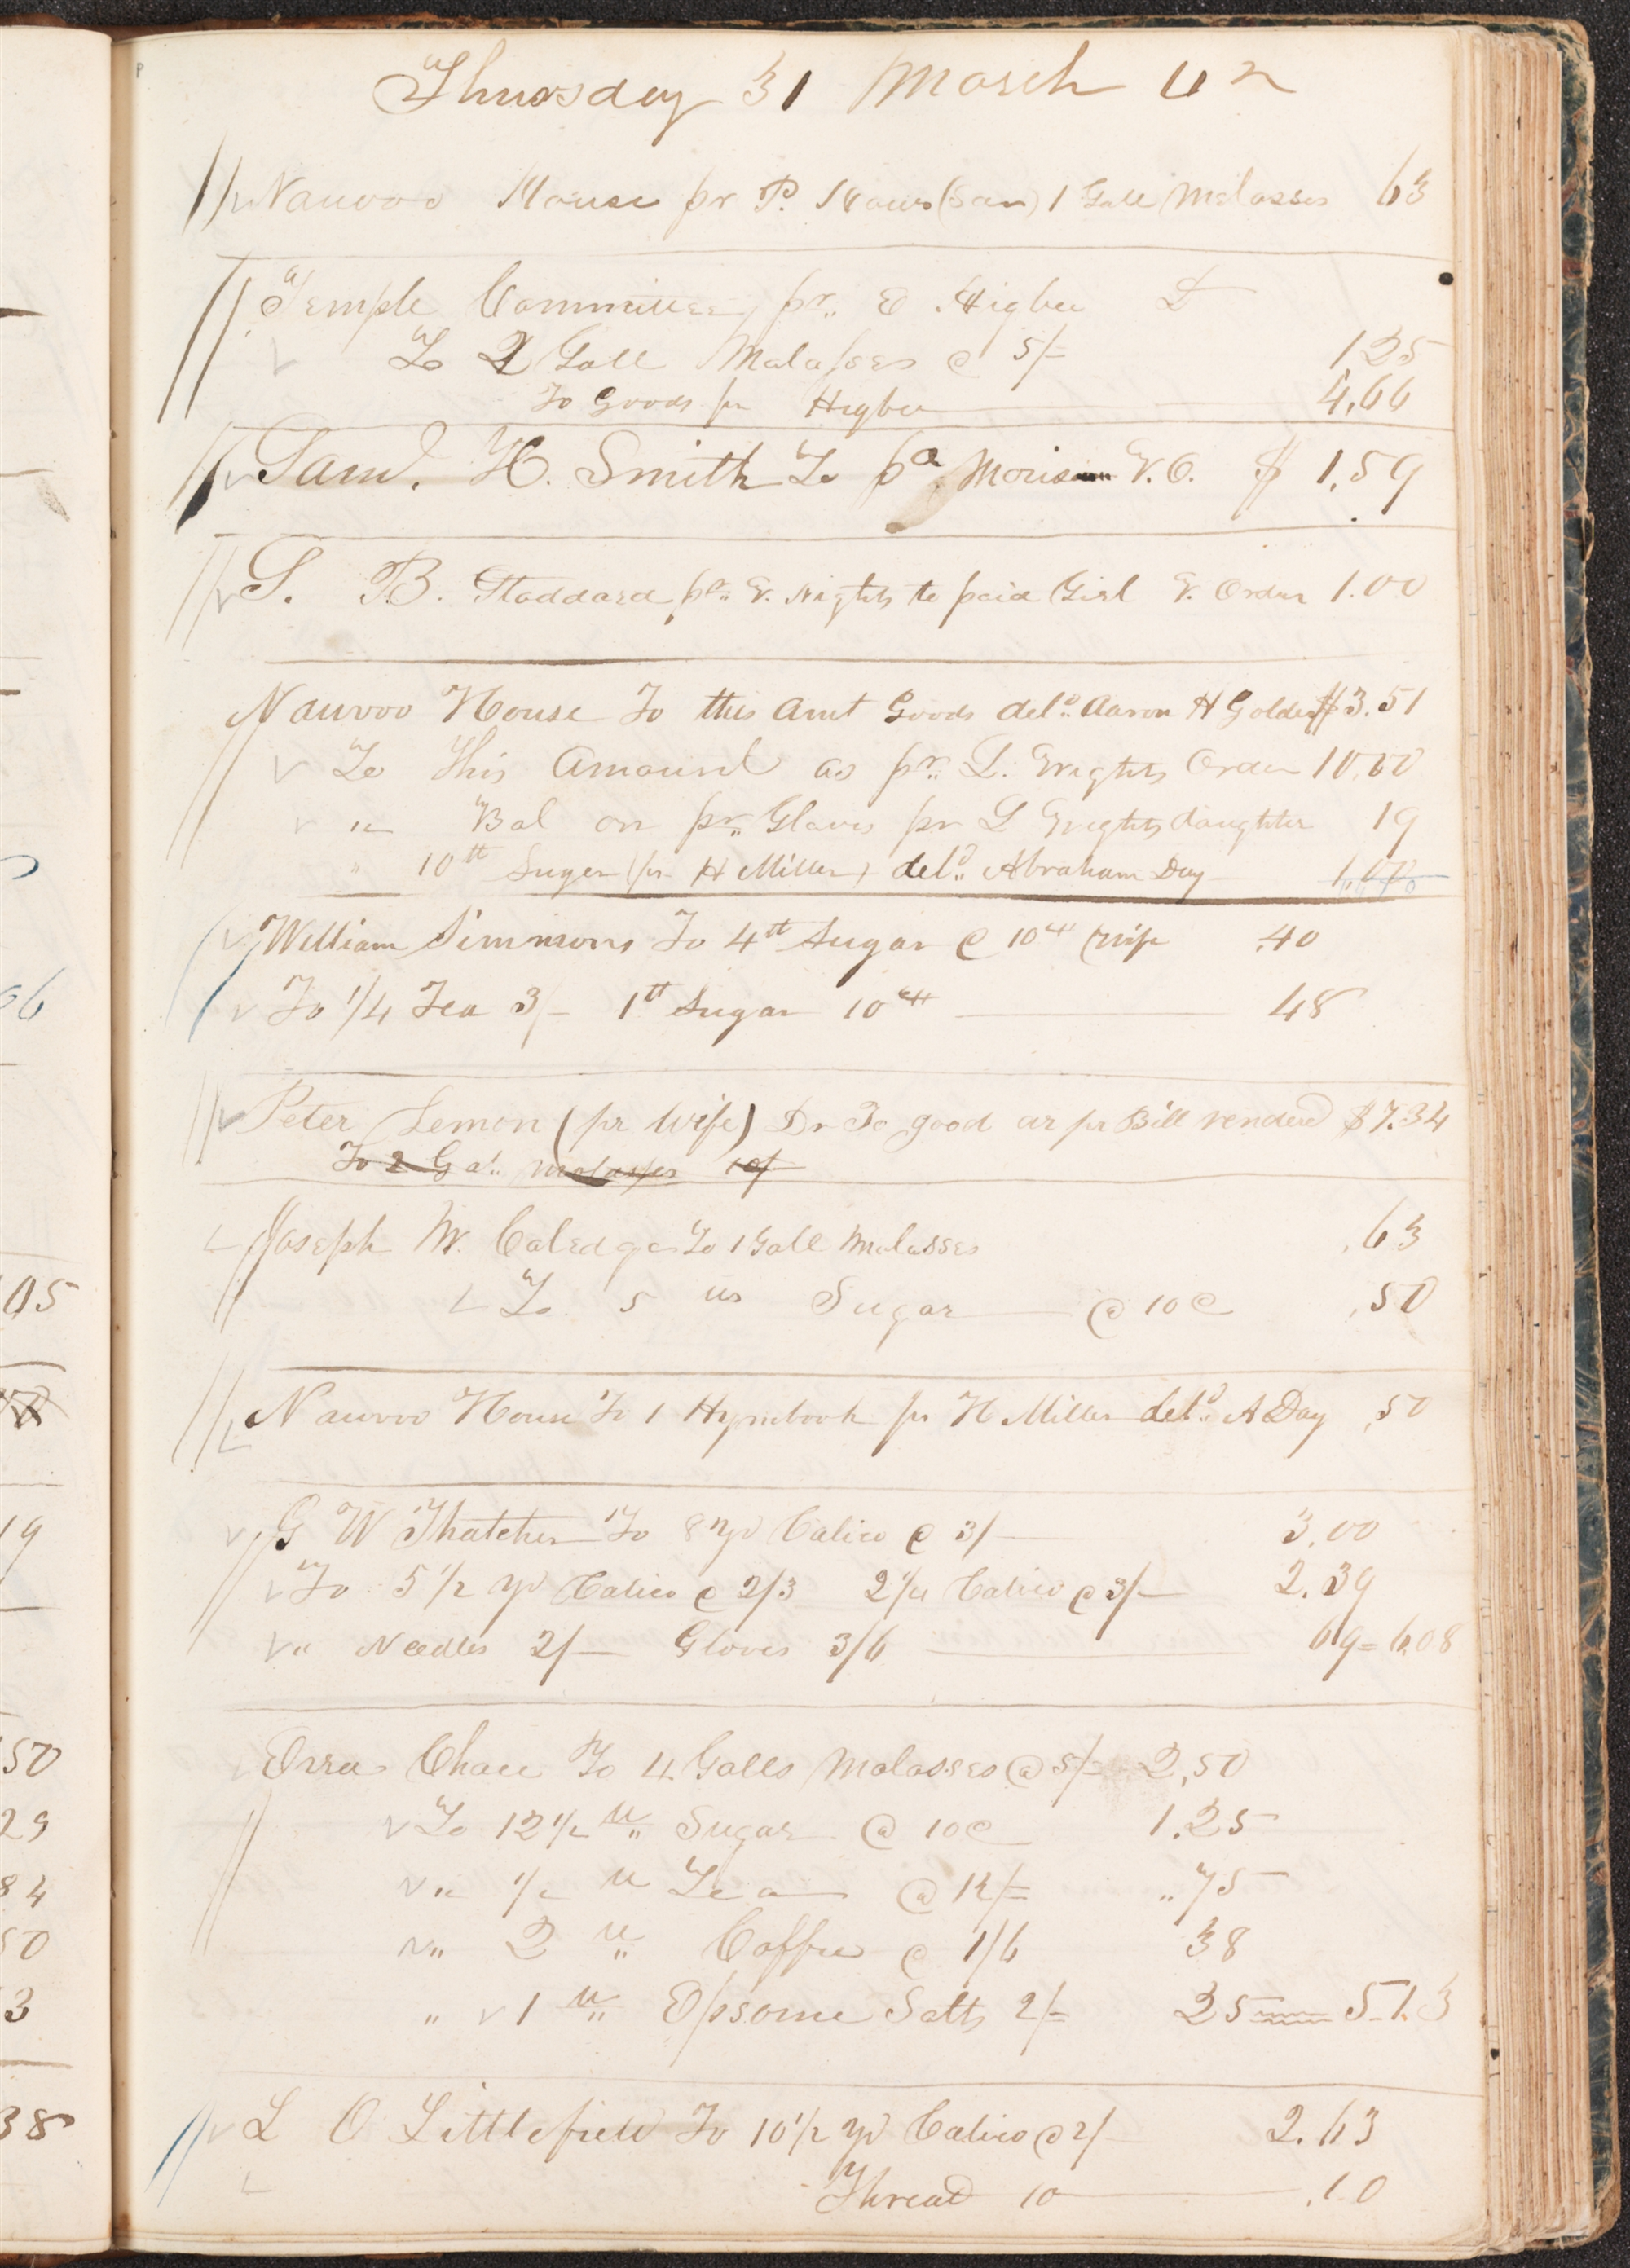 Thursday 31 March 42
Nauvoo House pr P. Haws (San) 1 Gall Molasses 63
Temple Committee, pr. E. Higbee D
To 2 Gall Malasses @ 5/= 125
To Goods pr Higbee 4,66
Saml. H. Smith To pa. Morison V.O. $ 1,59
S. B. Stoddard, pr. to paid Girl V. Order 1.00
Nauvoo House To this Amt Goods deld. Aaron H Golden $3.51
To This Amount as pr. L. Wrights Order 10,00
" Bal on pr. Gloves pr L Wrights daughter 19
" 10 tt Suger (pr H Miller) deld. Abraham Day
William Simmons To 4 tt Sugar @ 10 cts wife .40
To 1/4 Tea 3/- 1 tt Sugar 10 cts 48
Peter Lemon (pr Wife) Dr To good as pr Bill rendered $7.34
To 2 Gal. molasses 10/
Joseph W. Coledge To 1 Gall Molasses .63
To 5 tts Sugar @ 10 c .50
Nauvoo House To 1 Hymbook pr H Miller deld. A Day .50
G W Thatcher To 8 yd Calico @ 3/- 3.00
To 5 1/2 yd Calico @ 2/3 2 1/4 Calico @ 3/- 2.39
" Needles 2/- Gloves 3/6 69 = 6.08
Orra Chace To 4 Galls Molasses @ 5/= 2,50
To 12 1/2 tt " Sugar @ 10 c 1.25
" 1/2 tt Tea @ 12/= " 75
" 2 tt " Coffee @ 1/6 38
" 1 tt " Epsome Salts 2/= 25 5.13
L O Littlefield To 10 1/2 yd Calico @ 2/- 2.63
Thread 10 .10
06
05
19
50
29
84
50
3
38